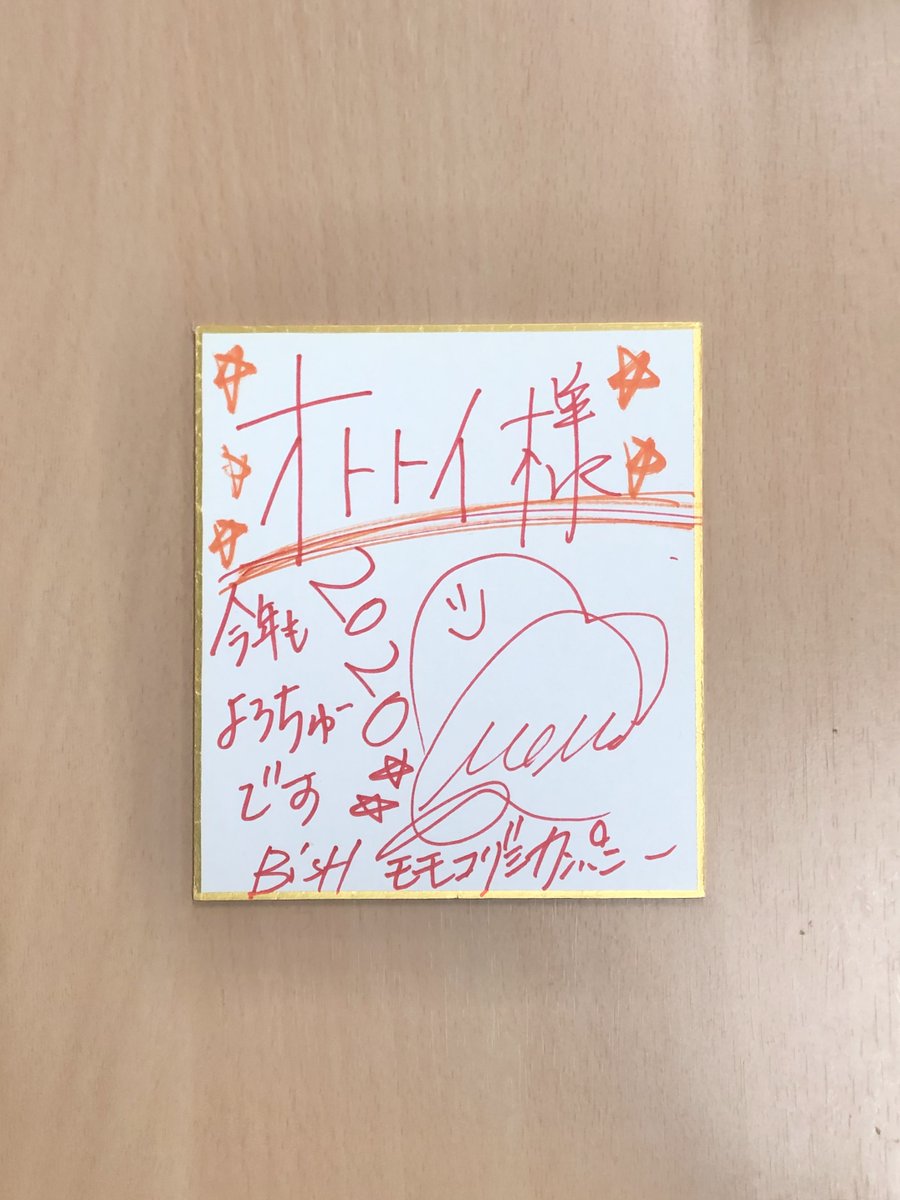 オトトイ様
2020
今年も
よろちゅー
です
momo
BiSH モモコグミカンパニー